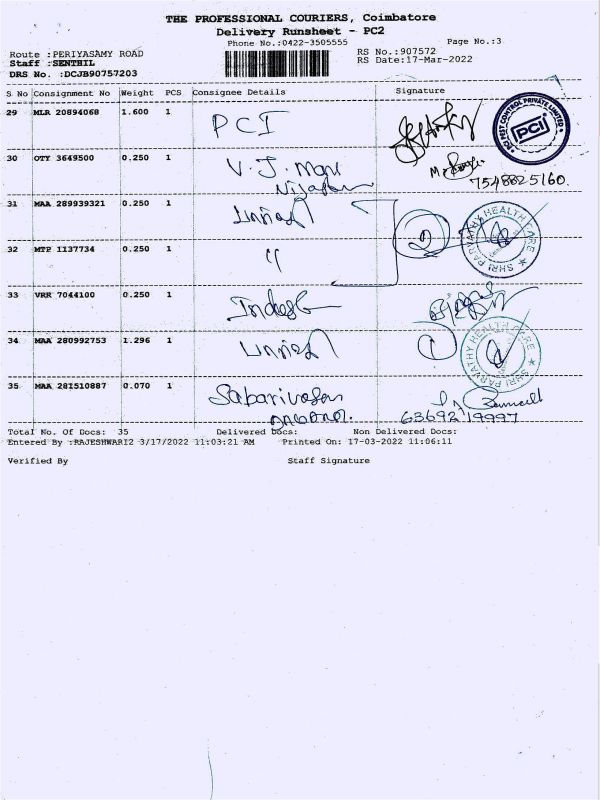 THE PROFESSIONAL COURIERS, Coimbatore
Delivery Runsheet - PC2
Phone No.:0422-3505555
Page No.:3
Route :PERIYASAMY ROAD
RS No.:907572
Staff :SENTHIL
RS Date:17-Mar-2022
DRS No. :DCJB90757203
S No Consignment No Weight PCS Consignee Details Signature
29 MLR 20894068 1.600 1 PCI
PCI PEST CONTROL PRIVATE LIMITED
PCI
30 OTY 3649500 0.250 1 V.J.
7548825160.
31 MAA 289939321 0.250 1
2
SHRI PARVATHY HEALTH CARE
32 MTP 1137734 0.250 1 "
33 VRR 7044100 0.250 1
34 MAA 280992753 1.296 1
1
SHRI PARVATHY HEALTH CARE
35 MAA 281510887 0.070 1 Sabarivasan
63692 19997
Total No. Of Docs: 35 Delivered Docs: Non Delivered Docs:
Entered By :RAJESHWARI2 3/17/2022 11:03:21 AM Printed On: 17-03-2022 11:06:11
Verified By Staff Signature